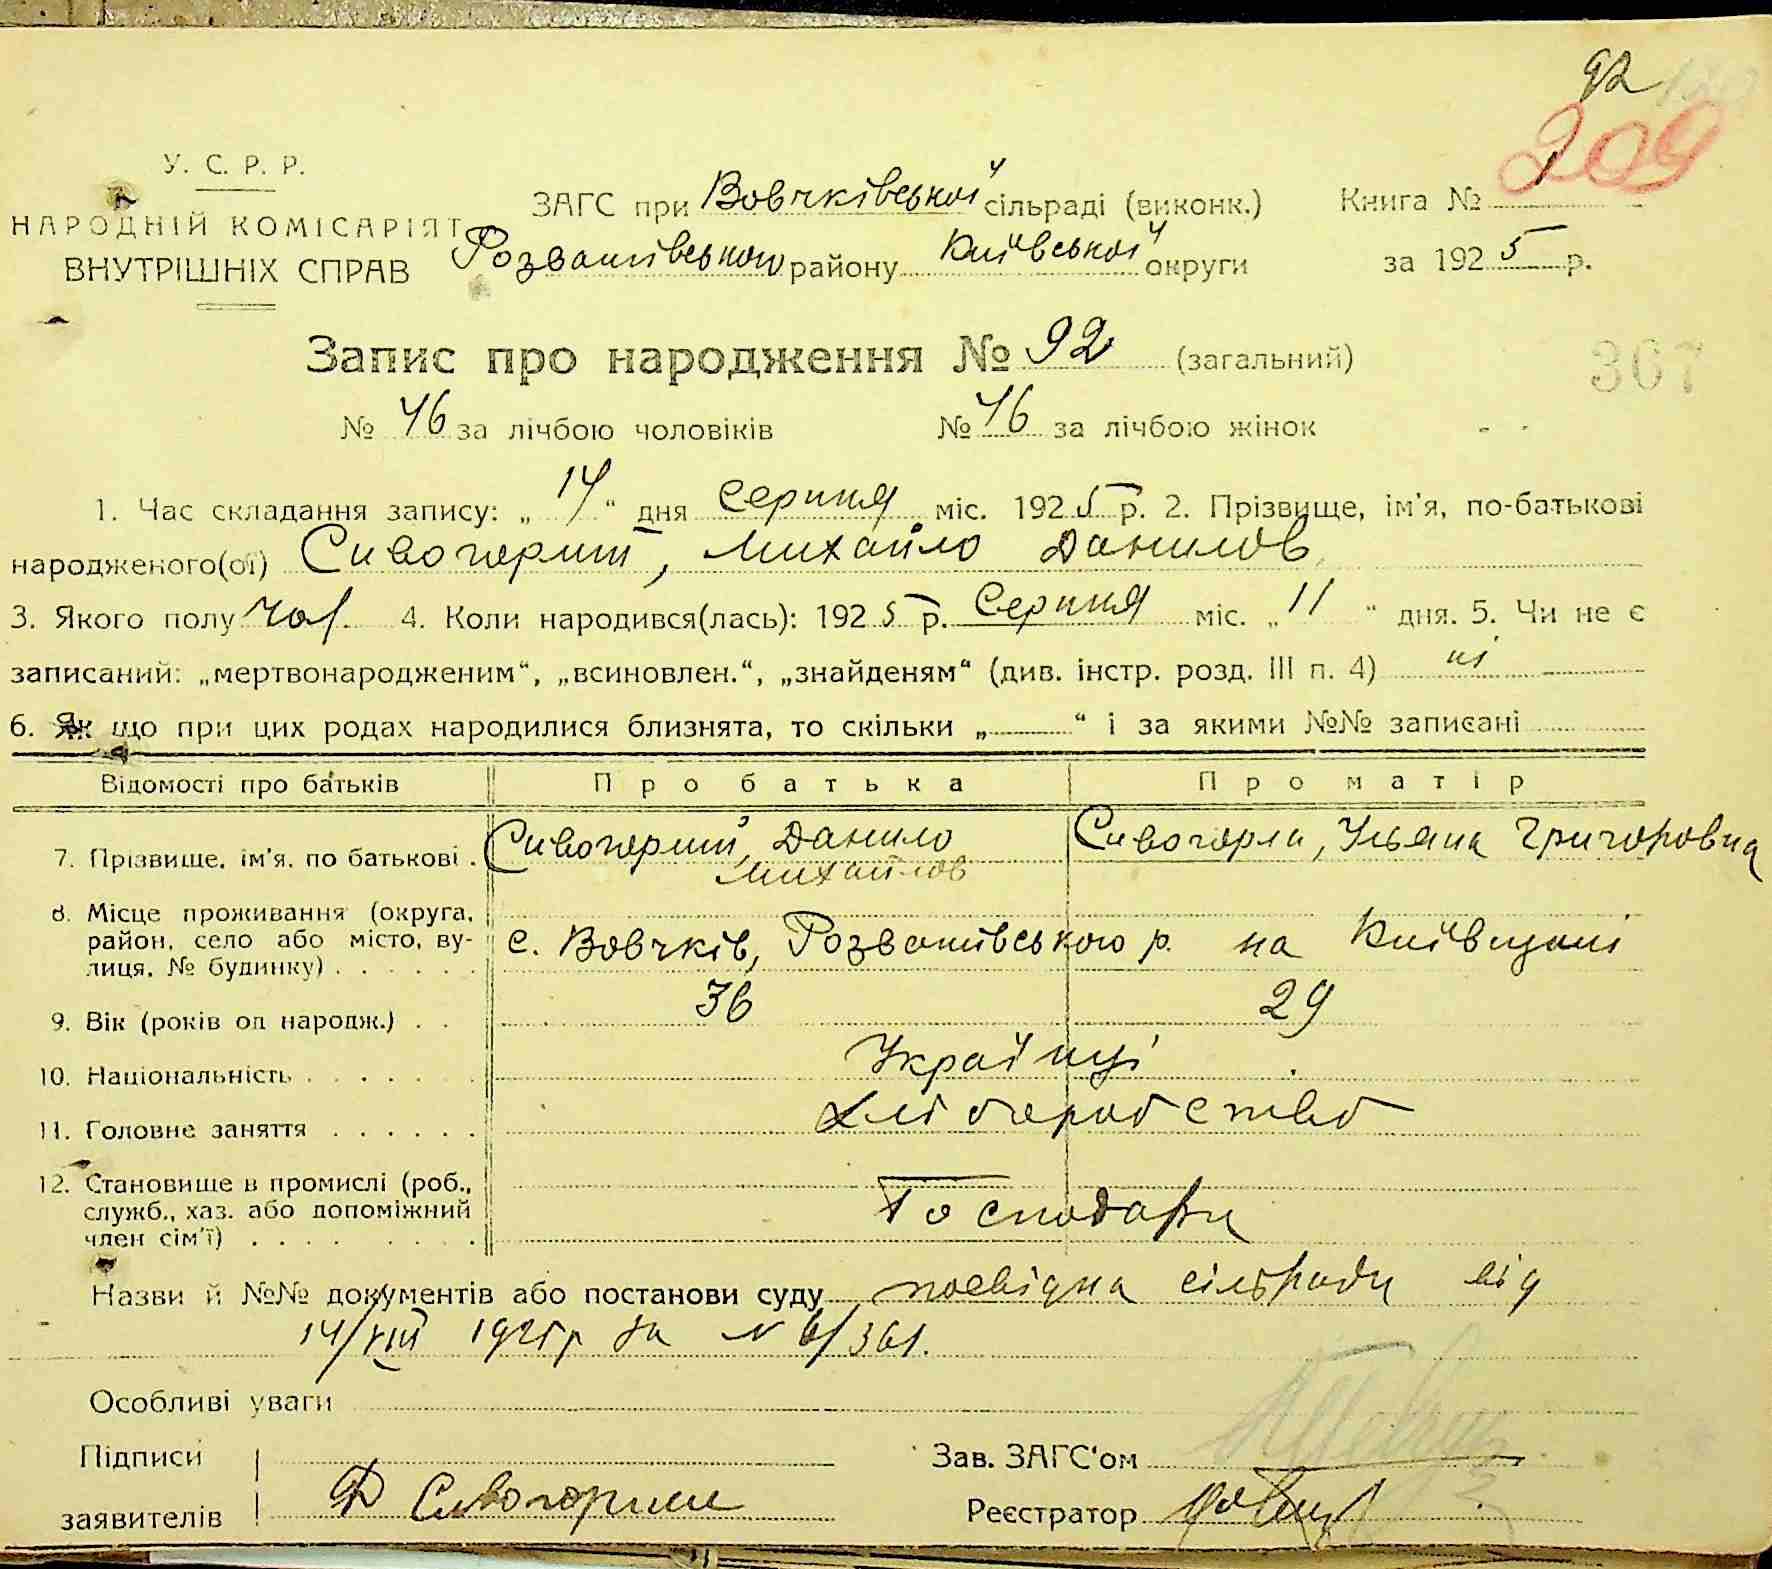 92
209
У. С. Р. Р.
НАРОДНІЙ КОМІСАРІЯТ
ВНУТРІШНІХ СПРАВ
ЗАГС при Вовчківської сільраді (виконк.)
Розважівського району Київської округи
Книга №
за 1925 р.
Запис про народження № 92 (загальний)
367
№ 46 за лічбою чоловіків № 46 за лічбою жінок
1. Час складання запису: „14“ дня Серпня міс. 1925 р. 2. Прізвище, ім'я, по-батькові
народженого(ої) Сивогорший, Михайло Данилов
3. Якого полу чол. 4. Коли народився(лась): 1925 р. Серпня міс. „11“ дня. 5. Чи не є
записаний: „мертвонародженим“, „всиновлен.“, „знайденям“ (див. інстр. розд. III п. 4) ні
6. Як що при цих родах народилися близнята, то скільки „ “ і за якими №№ записані
Відомості про батьків Про батька Про матір
7. Прізвище, ім'я, по батькові . Данило Михайлов Ульяна Григоровна
8. Місце проживання (округа, район, село або місто, ву-
лиця, № будинку) . . . . . . с. Вовчків, Розважівського р. на Київщині
9. Вік (років од народж.) . . 36 29
10. Національність . . . . . . . Українці
11. Головне заняття . . . . . . Хліборобство
12. Становище в промислі (роб.,
служб., хаз. або допоміжний
член сім'ї) . . . . . . . . Господари
Назви й №№ документів або постанови суду посвідка сільради від
14/VIII 1925 р за № 6/361.
Особливі уваги
Підписи
заявителів Д
Зав. ЗАГС'ом
Реєстратор